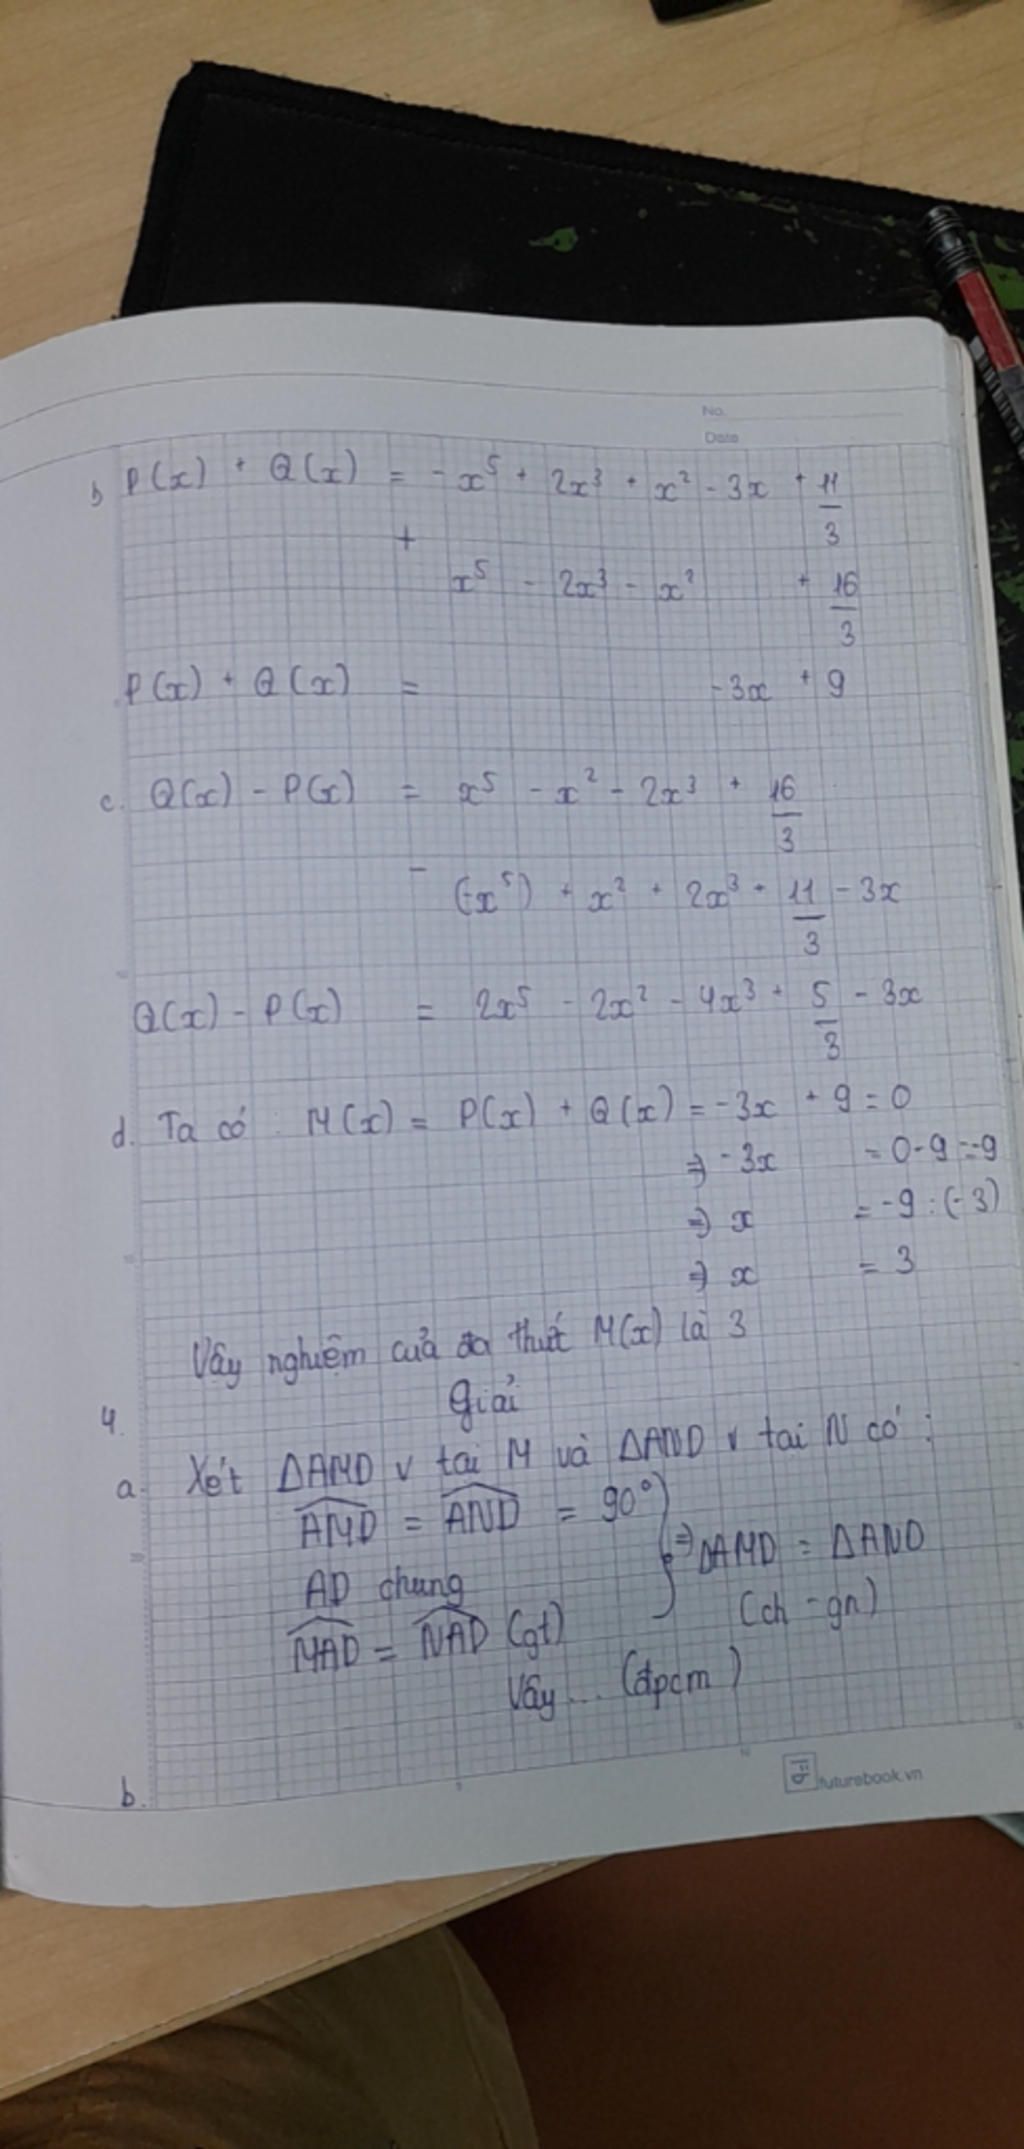 No.
Date
b P(x) + Q(x) = -x⁵ + 2x³ + x² - 3x + 11/3
+
x⁵ - 2x³ - x² + 16/3
P(x) + Q(x) = -3x + 9
c. Q(x) - P(x) = x⁵ - x² - 2x³ + 16/3
-
(-x⁵) + x² + 2x³ + 11/3 - 3x
Q(x) - P(x) = 2x⁵ - 2x² - 4x³ + 5/3 - 3x
d. Ta có : M(x) = P(x) + Q(x) = -3x + 9 = 0
⇒ -3x = 0-9 = -9
⇒ x = -9 : (-3)
⇒ x = 3
Vậy nghiệm của đa thức M(x) là 3
4. Giải
a. Xét ΔAMD v tại M và ΔAND v tại N có :
AMD = AND = 90°
AD chung
⇒ ΔAMD = ΔAND
MAD = NAD (gt)
(ch - gn)
Vậy ... (đpcm)
b.
futurebook.vn